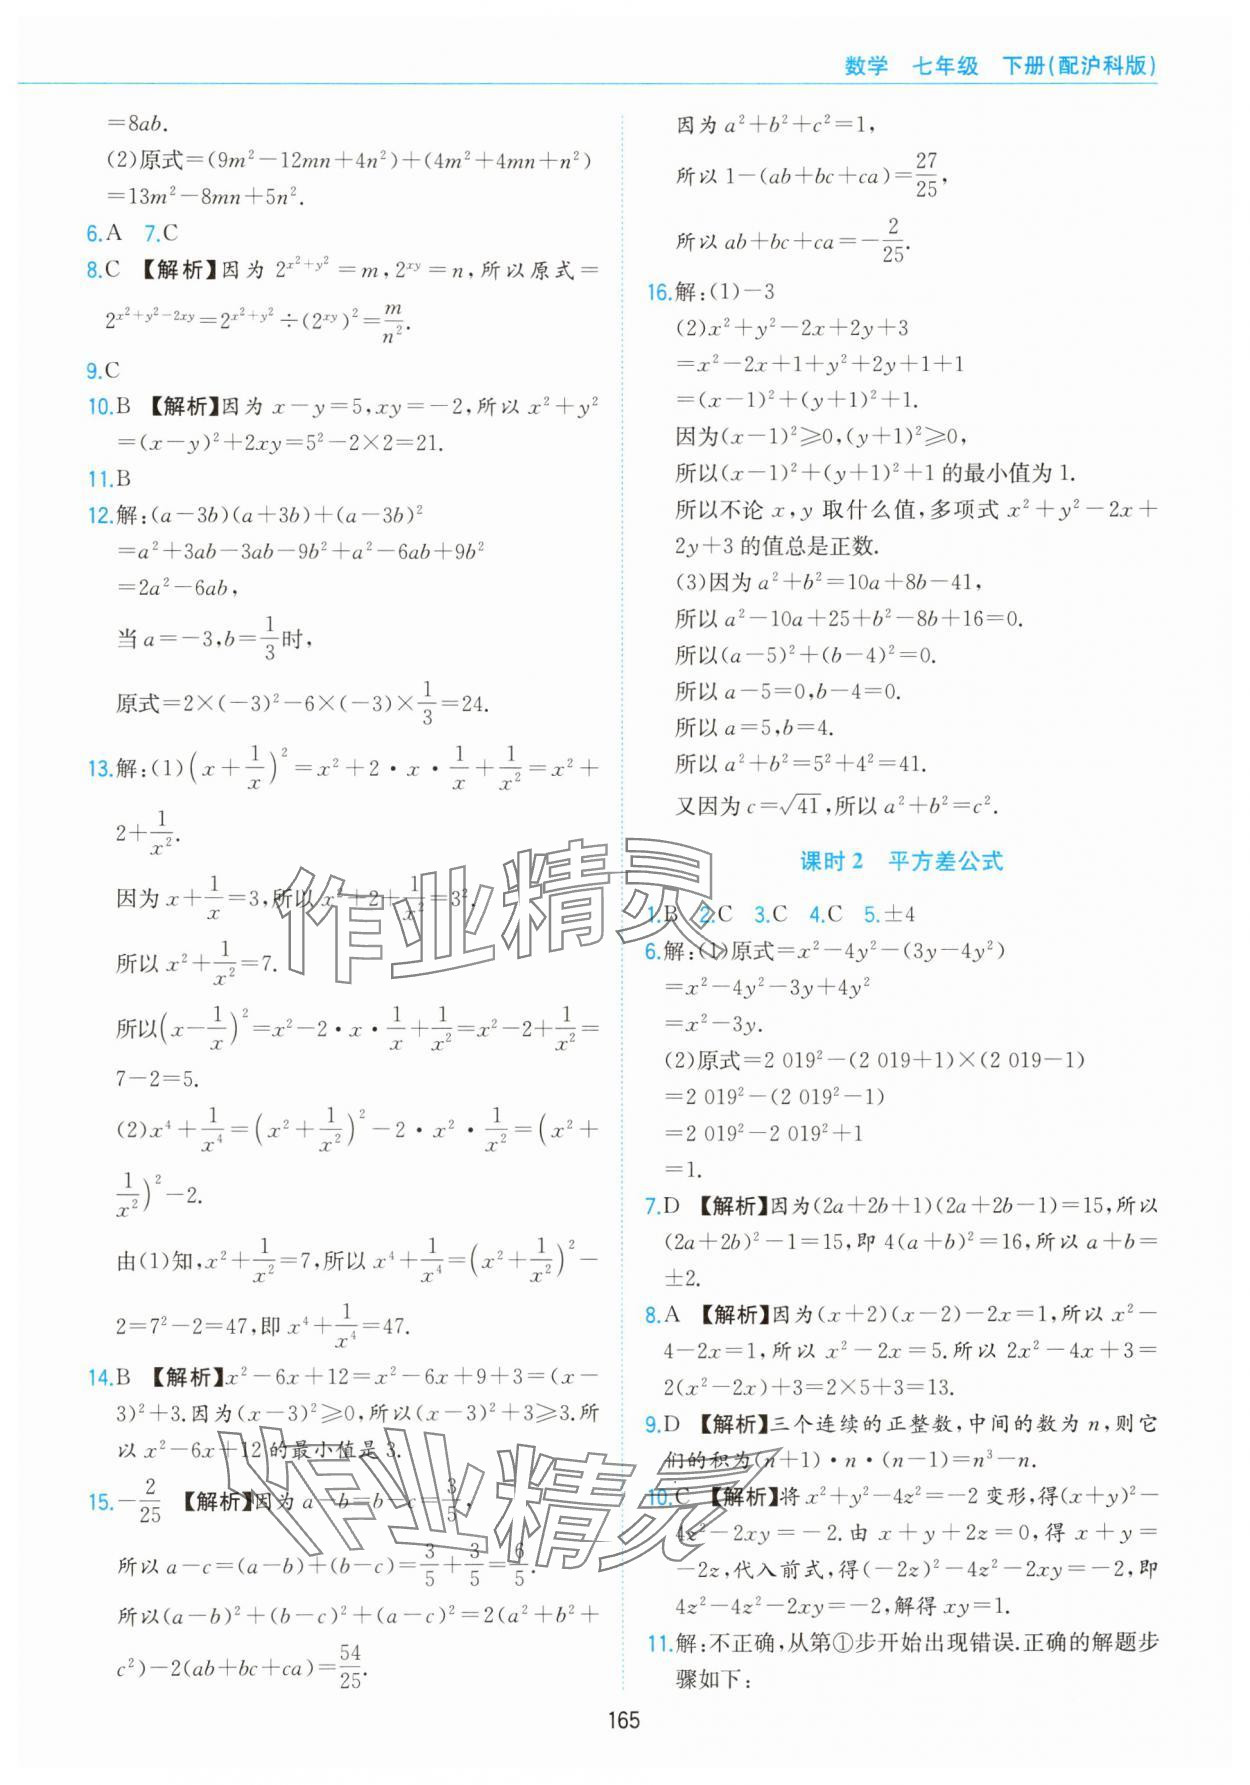 数学 七年级 下册(配沪科版)
=8ab.
(2)原式=(9m²-12mn+4n²)+(4m²+4mn+n²)
=13m²-8mn+5n².
6.A 7.C
8.C 【解析】因为 2^{x²+y²}=m,2^{xy}=n,所以原式=
2^{x²+y²-2xy}=2^{x²+y²}÷(2^{xy})²=m/n².
9.C
10.B 【解析】因为 x-y=5,xy=-2,所以 x²+y²
=(x-y)²+2xy=5²-2×2=21.
11.B
12.解:(a-3b)(a+3b)+(a-3b)²
=a²+3ab-3ab-9b²+a²-6ab+9b²
=2a²-6ab,
当 a=-3,b=1/3时,
原式=2×(-3)²-6×(-3)×1/3=24.
13.解:(1)(x+1/x)²=x²+2·x·1/x+1/x²=x²+
2+1/x².
因为 x+1/x=3,所以 x²+2+1/x²=3².
所以 x²+1/x²=7.
所以(x-1/x)²=x²-2·x·1/x+1/x²=x²-2+1/x²=
7-2=5.
(2)x⁴+1/x⁴=(x²+1/x²)²-2·x²·1/x²=(x²+
1/x²)²-2.
由(1)知,x²+1/x²=7,所以 x⁴+1/x⁴=(x²+1/x²)²-
2=7²-2=47,即 x⁴+1/x⁴=47.
14.B 【解析】x²-6x+12=x²-6x+9+3=(x-
3)²+3.因为(x-3)²≥0,所以(x-3)²+3≥3.所
以 x²-6x+12的最小值是 3.
15.-2/25 【解析】因为 a-b=b-c=3/5,
所以 a-c=(a-b)+(b-c)=3/5+3/5=6/5.
所以(a-b)²+(b-c)²+(a-c)²=2(a²+b²+
c²)-2(ab+bc+ca)=54/25.
因为 a²+b²+c²=1,
所以 1-(ab+bc+ca)=27/25,
所以 ab+bc+ca=-2/25.
16.解:(1)-3
(2)x²+y²-2x+2y+3
=x²-2x+1+y²+2y+1+1
=(x-1)²+(y+1)²+1.
因为(x-1)²≥0,(y+1)²≥0,
所以(x-1)²+(y+1)²+1的最小值为 1.
所以不论 x,y 取什么值,多项式 x²+y²-2x+
2y+3 的值总是正数.
(3)因为 a²+b²=10a+8b-41,
所以 a²-10a+25+b²-8b+16=0.
所以(a-5)²+(b-4)²=0.
所以 a-5=0,b-4=0.
所以 a=5,b=4.
所以 a²+b²=5²+4²=41.
又因为 c=√41,所以 a²+b²=c².
课时 2 平方差公式
1.B 2.C 3.C 4.C 5.±4
6.解:(1)原式=x²-4y²-(3y-4y²)
=x²-4y²-3y+4y²
=x²-3y.
(2)原式=2 019²-(2 019+1)×(2 019-1)
=2 019²-(2 019²-1)
=2 019²-2 019²+1
=1.
7.D 【解析】因为(2a+2b+1)(2a+2b-1)=15,所以
(2a+2b)²-1=15,即 4(a+b)²=16,所以 a+b=
±2.
8.A 【解析】因为(x+2)(x-2)-2x=1,所以 x²-
4-2x=1,所以 x²-2x=5.所以 2x²-4x+3=
2(x²-2x)+3=2×5+3=13.
9.D 【解析】三个连续的正整数,中间的数为 n,则它
们的积为(n+1)·n·(n-1)=n³-n.
10.C 【解析】将 x²+y²-4z²=-2 变形,得(x+y)²-
4z²-2xy=-2.由 x+y+2z=0,得 x+y=
-2z,代入前式,得(-2z)²-4z²-2xy=-2,即
4z²-4z²-2xy=-2,解得 xy=1.
11.解:不正确,从第①步开始出现错误.正确的解题步
骤如下:
165
作业精灵
作业精灵